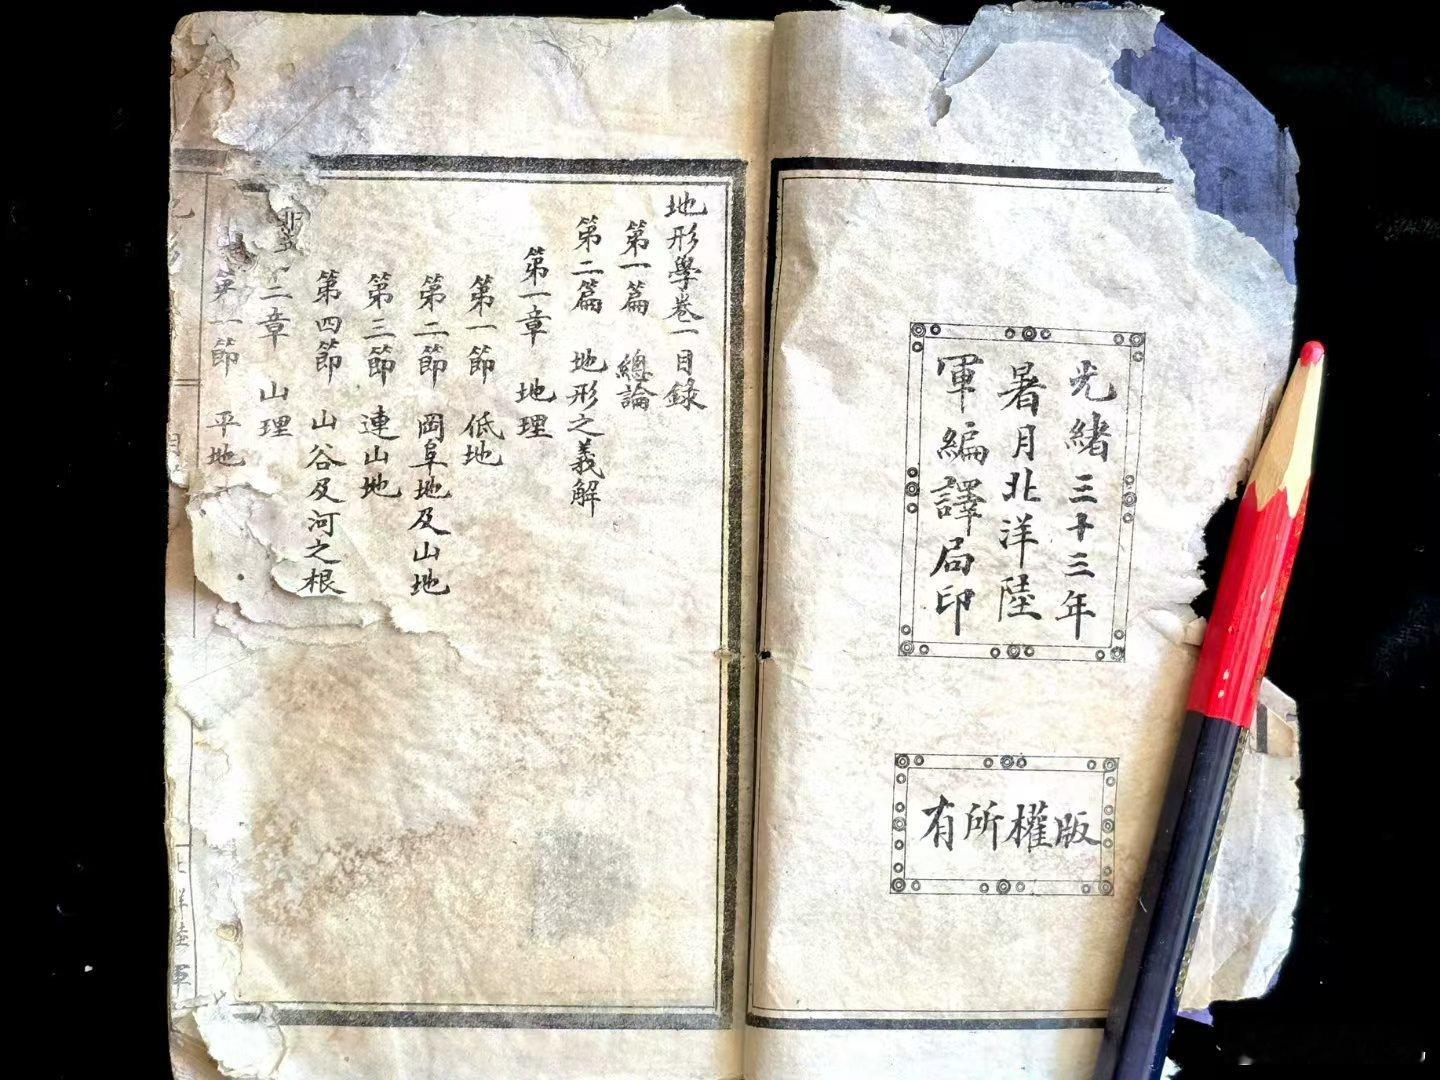 光緒三十三年
暑月北洋陸
軍編譯局印
有所權版
地形學卷一目錄
第一篇 總論
第二篇 地形之義解
第一章 地理
第一節 低地
第二節 岡阜地及山地
第三節 連山地
第四節 山谷及河之根
二章 山理
第一節 平地
洋陸軍